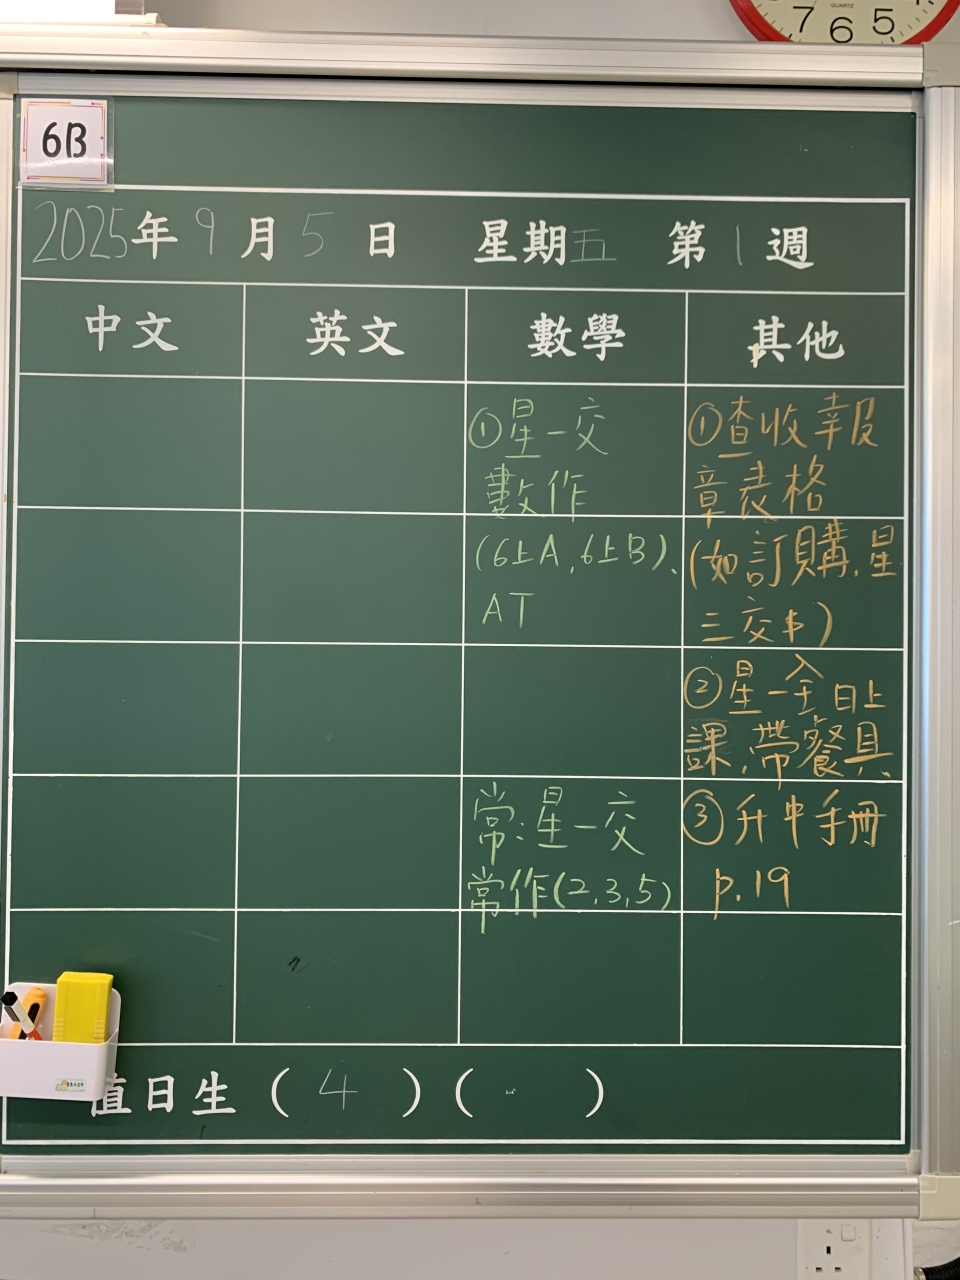 7 6 5
QUARTZ
6B
2025年9月5日 星期五 第1週
中文 英文 數學 其他
①星一交
數作
(6上A,6上B)、
AT
常:星一交
常作(2,3,5)
①查收報
章表格
(如訂購,星
三交)
②星一全日上
課,帶餐具
③升中手冊
p.19
值日生(4)( )